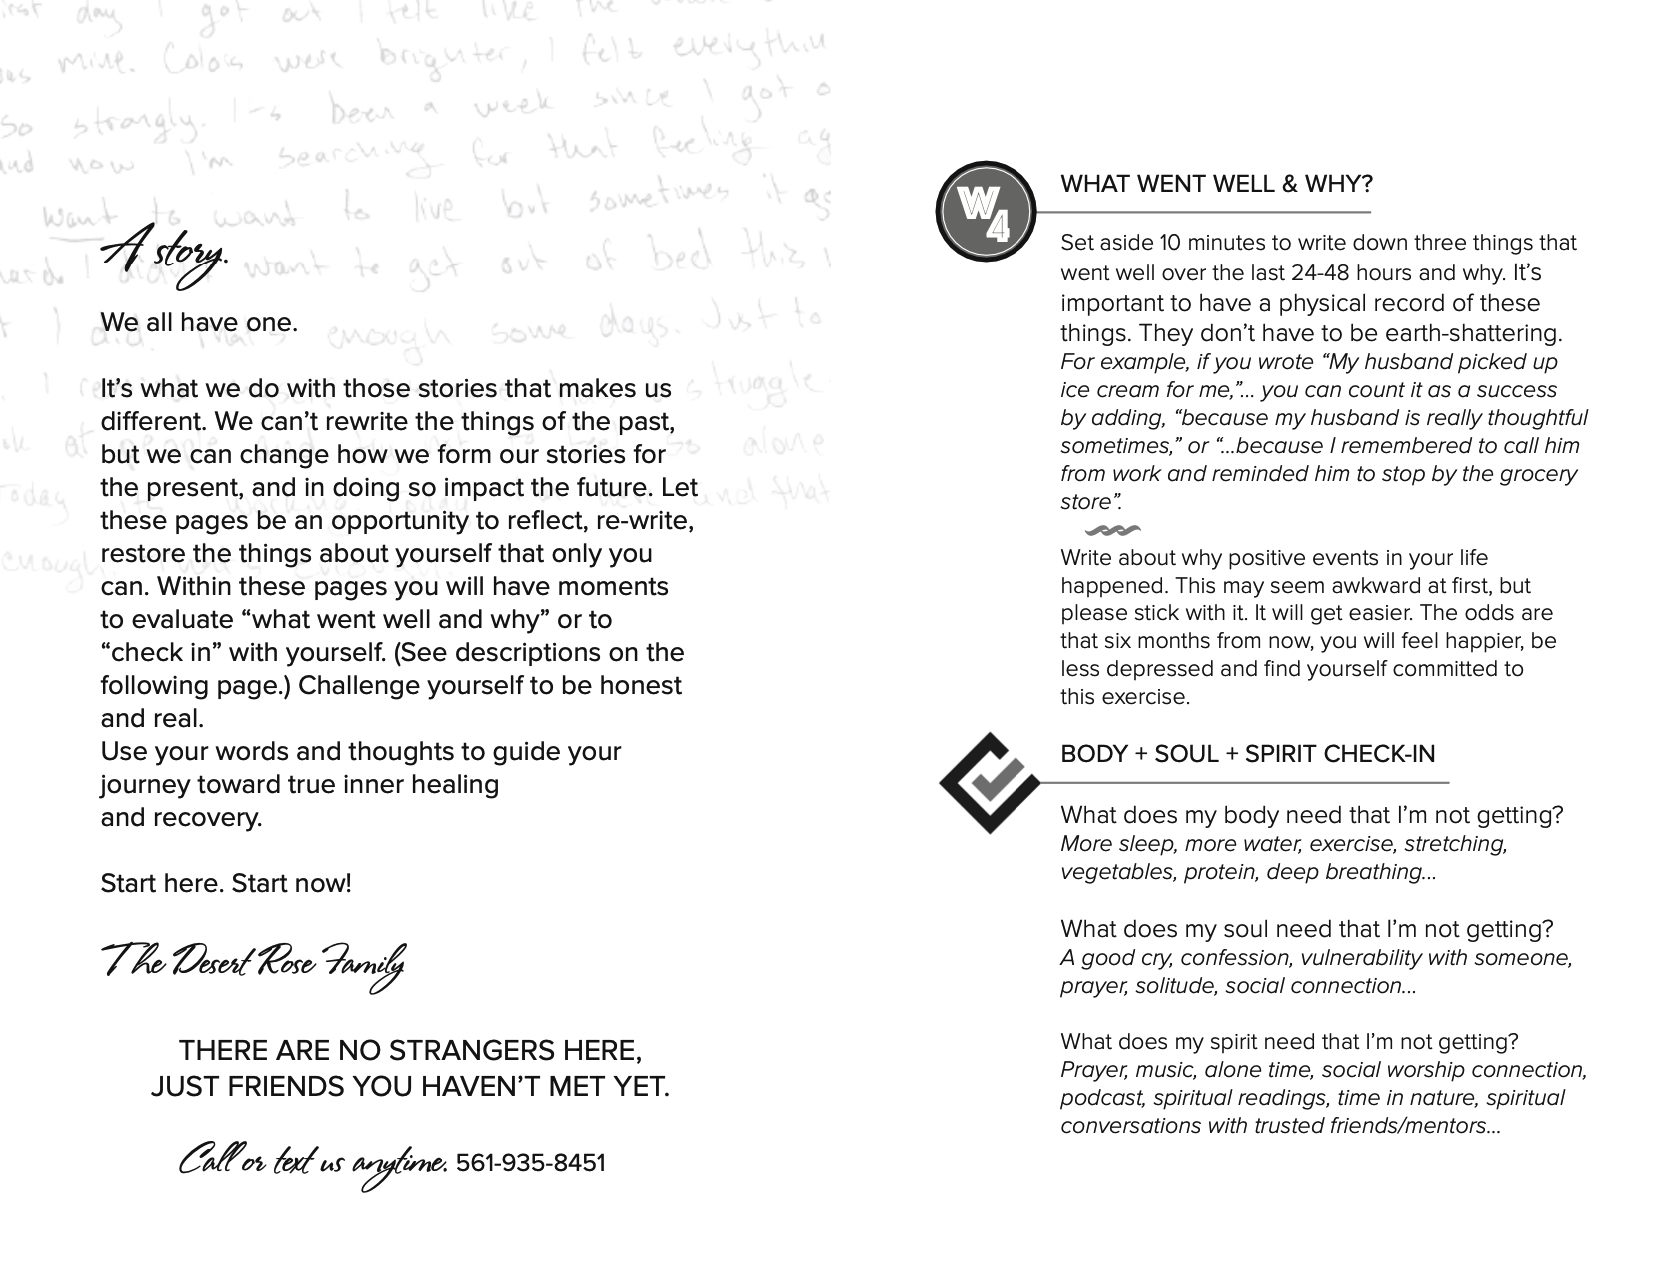 first day I got out I felt like the
mine. Colors were brighter, I felt everythin
so strongly. It's been a week since I got o
and now I'm searching for that feeling ag
want to want to live but sometimes it
hard. I want to get out of bed this
I did. That's enough some days. Just to
I struggle
at people so alone
Today and that
enough. That's enough
A story.
We all have one.
It’s what we do with those stories that makes us
different. We can’t rewrite the things of the past,
but we can change how we form our stories for
the present, and in doing so impact the future. Let
these pages be an opportunity to reflect, re-write,
restore the things about yourself that only you
can. Within these pages you will have moments
to evaluate “what went well and why” or to
“check in” with yourself. (See descriptions on the
following page.) Challenge yourself to be honest
and real.
Use your words and thoughts to guide your
journey toward true inner healing
and recovery.
Start here. Start now!
The Desert Rose Family
THERE ARE NO STRANGERS HERE,
JUST FRIENDS YOU HAVEN’T MET YET.
Call or text us anytime. 561-935-8451
W4
WHAT WENT WELL & WHY?
Set aside 10 minutes to write down three things that
went well over the last 24-48 hours and why. It’s
important to have a physical record of these
things. They don’t have to be earth-shattering.
For example, if you wrote “My husband picked up
ice cream for me,”... you can count it as a success
by adding, “because my husband is really thoughtful
sometimes,” or “...because I remembered to call him
from work and reminded him to stop by the grocery
store”.
Write about why positive events in your life
happened. This may seem awkward at first, but
please stick with it. It will get easier. The odds are
that six months from now, you will feel happier, be
less depressed and find yourself committed to
this exercise.
BODY + SOUL + SPIRIT CHECK-IN
What does my body need that I’m not getting?
More sleep, more water, exercise, stretching,
vegetables, protein, deep breathing...
What does my soul need that I’m not getting?
A good cry, confession, vulnerability with someone,
prayer, solitude, social connection...
What does my spirit need that I’m not getting?
Prayer, music, alone time, social worship connection,
podcast, spiritual readings, time in nature, spiritual
conversations with trusted friends/mentors...